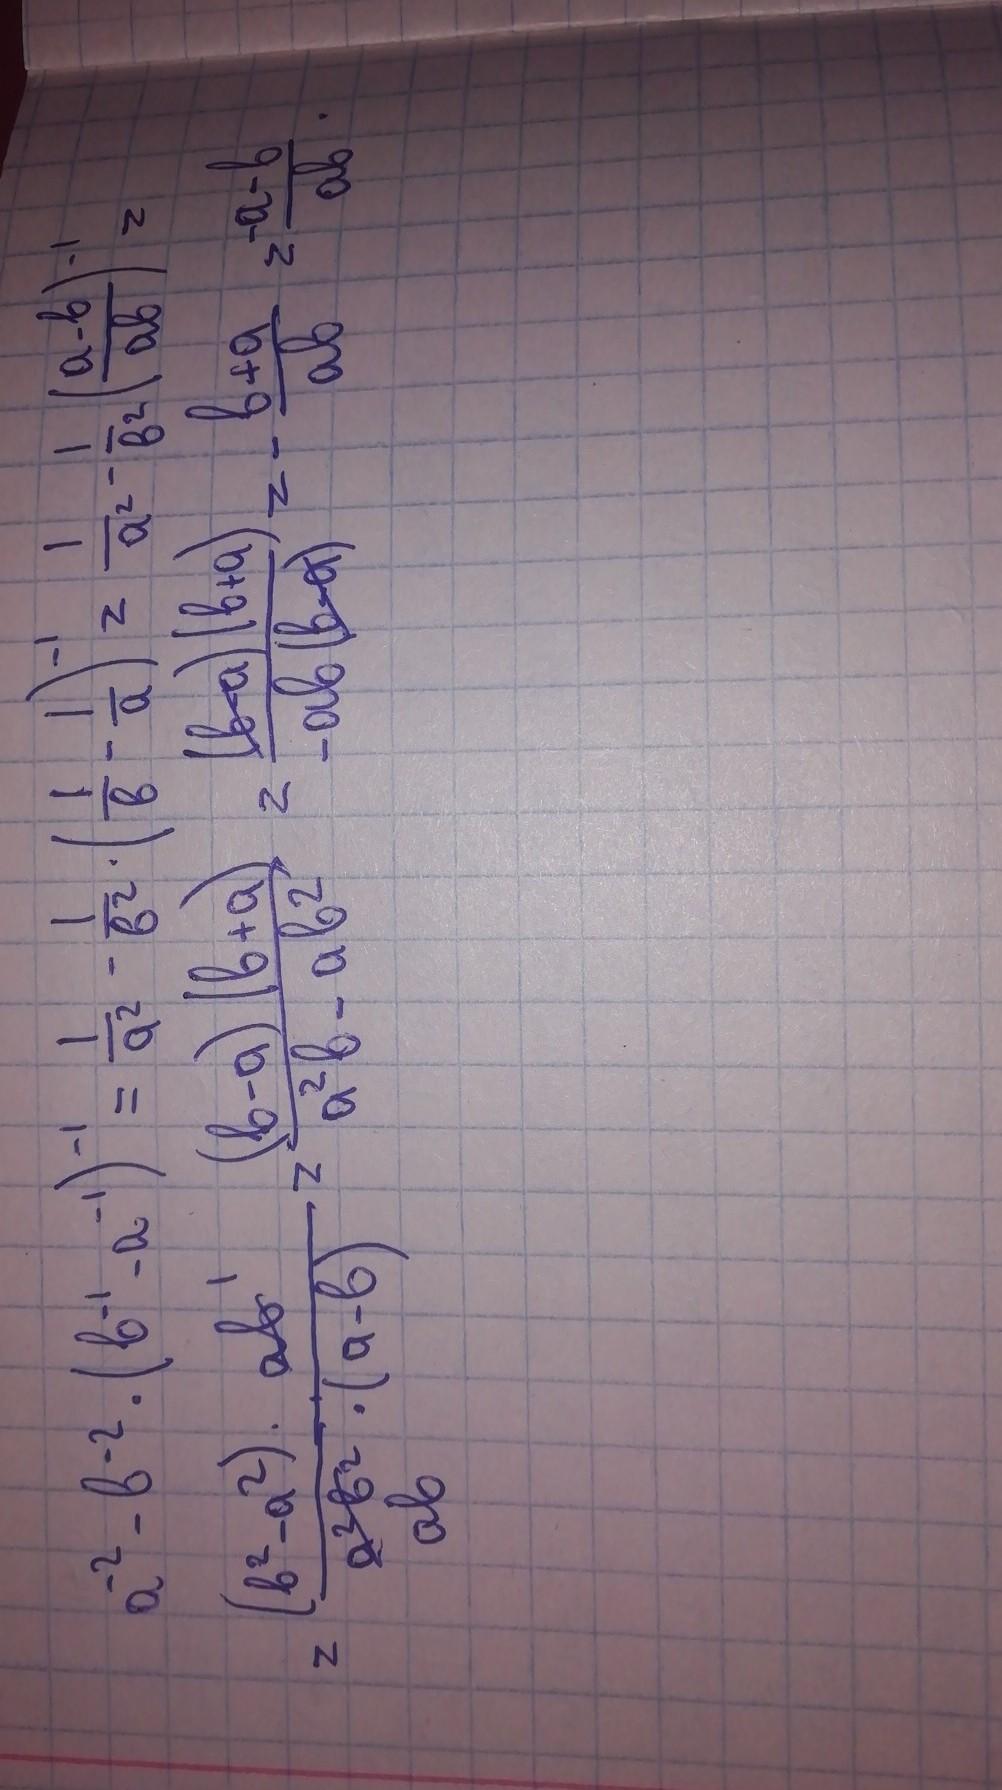 a⁻² - b⁻² · (b⁻¹ - a⁻¹)⁻¹ = 1/a² - 1/b² · (1/b - 1/a)⁻¹ = 1/a² - 1/b² ((a-b)/ab)⁻¹ =
= ((b²-a²) · ab¹)/(a²b² · (a-b)) ab = ((b-a)(b+a))/(a²b - ab²) = ((b-a)(b+a))/(-ab(b-a)) = - (b+a)/ab = (-a-b)/ab.